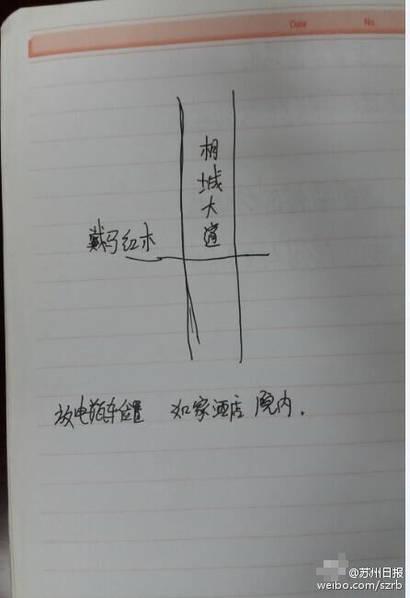 Date No.
相城大道
戴马红木
放电瓶车位置 如家酒店 院内.
@苏州日报
weibo.com/szrb